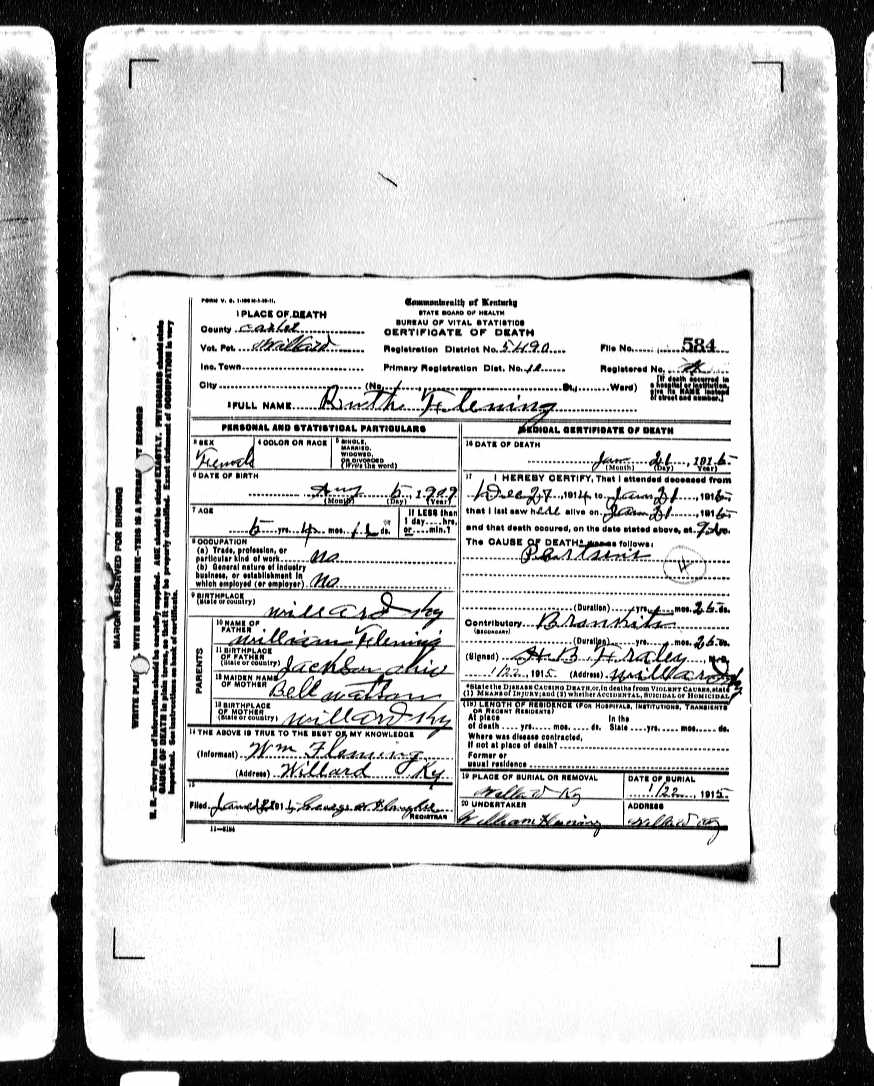 FORM V. S. 1-100 M-1-10-11.
Commonwealth of Kentucky
STATE BOARD OF HEALTH
BUREAU OF VITAL STATISTICS
CERTIFICATE OF DEATH
1 PLACE OF DEATH
County Carter
Vot. Pct. Willard
Inc. Town
City
Registration District No. 5490
Primary Registration Dist. No.
(No. St., Ward)
File No. 584
Registered No.
[If death occurred in a hospital or institution, give its NAME instead of street and number.]
2 FULL NAME Ruthe Fleming
PERSONAL AND STATISTICAL PARTICULARS
3 SEX
Female
4 COLOR OR RACE
5 SINGLE, MARRIED, WIDOWED, OR DIVORCED (Write the word)
6 DATE OF BIRTH
5, 1909
(Month) (Day) (Year)
7 AGE
5 yrs. 4 mos. ds.
If LESS than 1 day....hrs. or....min.?
8 OCCUPATION
(a) Trade, profession, or particular kind of work no
(b) General nature of industry business, or establishment in which employed (or employer) no
9 BIRTHPLACE
(State or country) Willard Ky
PARENTS
10 NAME OF FATHER William Fleming
11 BIRTHPLACE OF FATHER (State or country) Jackson Ohio
12 MAIDEN NAME OF MOTHER Bell Watson
13 BIRTHPLACE OF MOTHER (State or country) Willard Ky
14 THE ABOVE IS TRUE TO THE BEST OF MY KNOWLEDGE
(Informant) Wm Fleming
(Address) Willard Ky
15
Filed George
REGISTRAR
11-6184
MEDICAL CERTIFICATE OF DEATH
16 DATE OF DEATH
Jan 21, 1915
(Month) (Day) (Year)
17 I HEREBY CERTIFY, That I attended deceased from
Dec 27, 1914 to Jan 21, 1915
that I last saw her alive on Jan 21, 1915
and that death occured, on the date stated above, at
The CAUSE OF DEATH was as follows:
4
(Duration) yrs. mos. ds.
Contributory
(SECONDARY)
(Duration) yrs. mos. ds.
(Signed) H B Fraley M. D.
1/22, 1915 (Address) Willard Ky
*State the DISEASE CAUSING DEATH, or, in deaths from VIOLENT CAUSES, state (1) MEANS OF INJURY; and (2) whether ACCIDENTAL, SUICIDAL or HOMICIDAL.
(18) LENGTH OF RESIDENCE (FOR HOSPITALS, INSTITUTIONS, TRANSIENTS OR RECENT RESIDENTS)
At place of death yrs. mos. ds. In the State yrs. mos. ds.
Where was disease contracted, if not at place of death?
Former or usual residence
19 PLACE OF BURIAL OR REMOVAL
Willard Ky
DATE OF BURIAL
1/22, 1915
20 UNDERTAKER
William Fleming
ADDRESS
Willard Ky
MARGIN RESERVED FOR BINDING